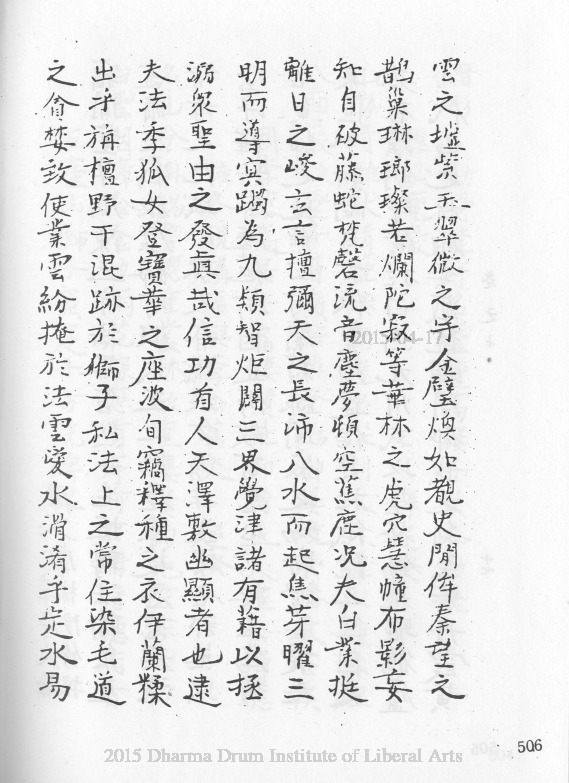 雲之墟紫玉翠微之宇金璧煥如覩史閒侔秦望之
鵲巢琳瑯璨若爛陀寂等華林之虎穴慧幢布影妄
知自破藤蛇梵磬流音塵夢頓空蕉鹿况夫白業挺
離日之峻玄言擅彌天之長沛八水而起焦芽曜三
明而導㝠躅為九類智炬闢三界覺津諸有藉以拯
溺衆聖由之發真哉信功首人天澤敷幽顯者也逮
夫法季狐女登寶華之座波旬竊釋種之衣伊蘭糅
出乎旃檀野干混跡於獅子私法上之常住染毛道
之貪婪致使業雲紛掩於法雲愛水淆乎定水易
2015-04-17
506
2015 Dharma Drum Institute of Liberal Arts